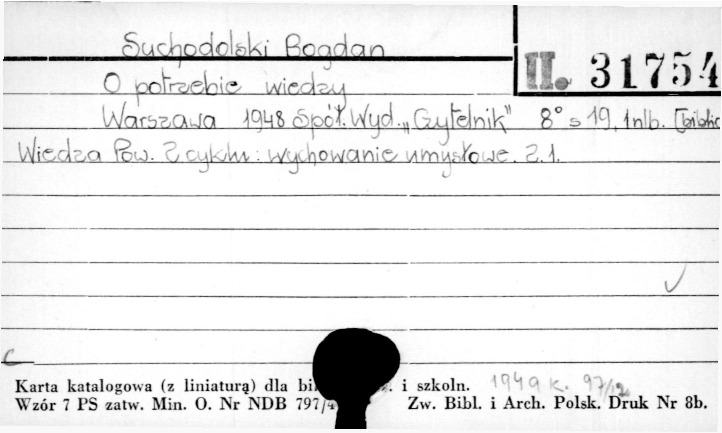 Suchodolski Bogdan
II. 31754
O potrzebie wiedzy
Warszawa 1948 Spół. Wyd. „Czytelnik" 8° s 19, 1nlb. [biblio
Wiedza Pow. Z cyklu: Wychowanie umysłowe. Z. 1.
C
Karta katalogowa (z liniaturą) dla i szkoln. 1949 K. 97/12
Wzór 7 PS zatw. Min. O. Nr NDB 797/4 Zw. Bibl. i Arch. Polsk. Druk Nr 8b.